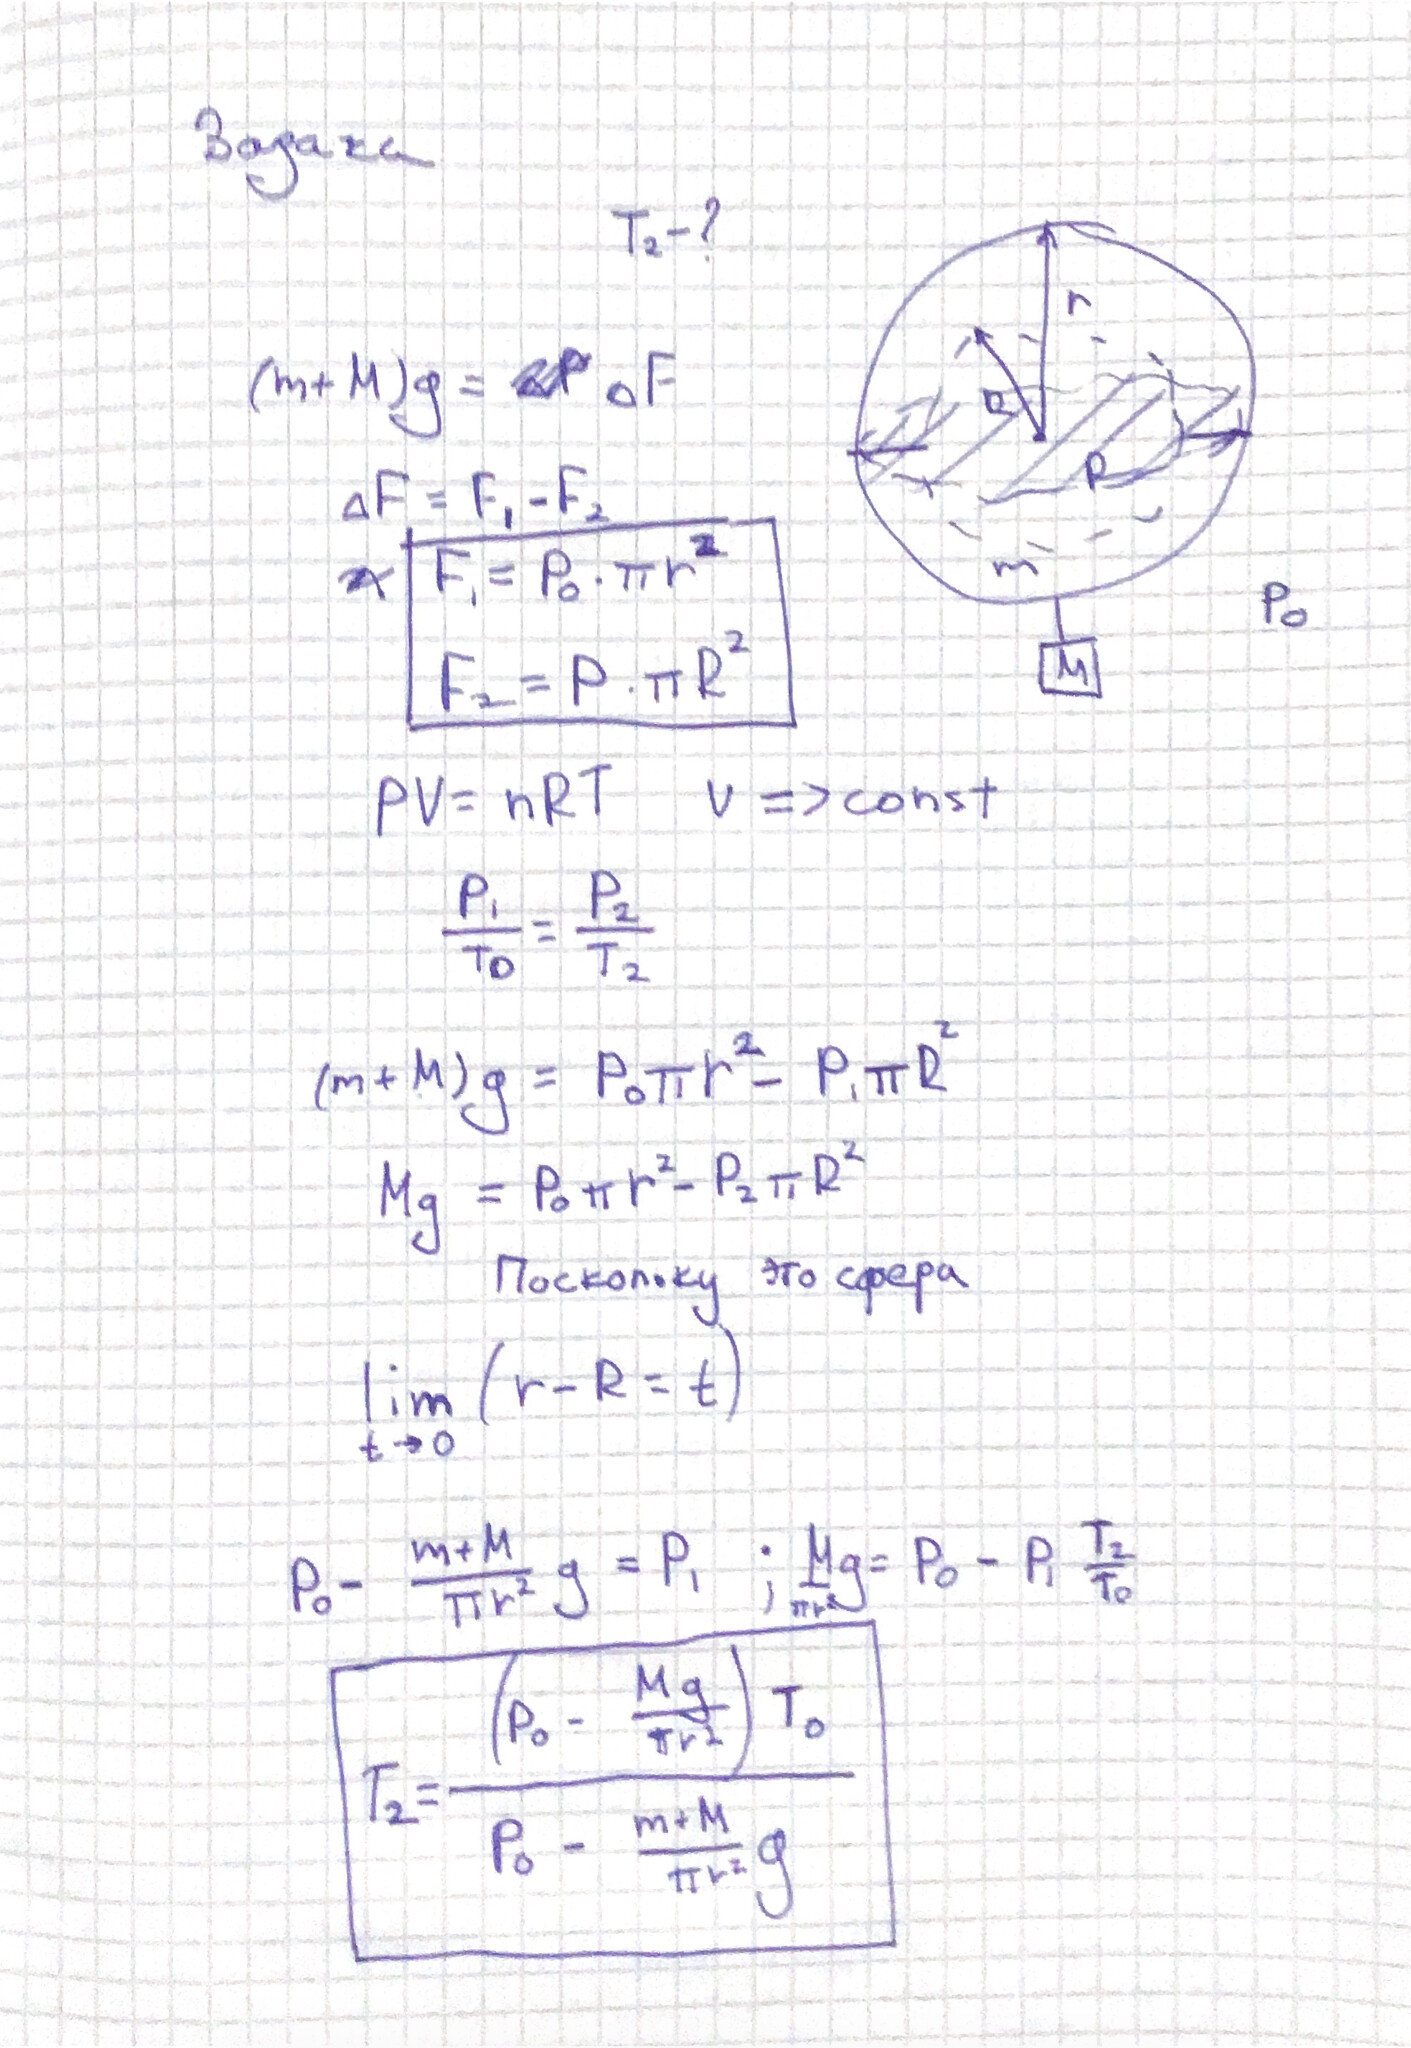 Задача
T₂-?
(m+M)g = ΔF
ΔF = F₁-F₂
F₁ = P₀·πr²
F₂ = P·πR²
PV = nRT V => const
P₁/T₀ = P₂/T₂
(m+M)g = P₀πr² - P₁πR²
Mg = P₀πr² - P₂πR²
Поскольку это сфера
lim t→0 (r-R=t)
P₀ - (m+M)/(πr²) g = P₁ ; M/(πr²) g = P₀ - P₁ T₂/T₀
T₂ = (P₀ - Mg/(πr²)) T₀ / (P₀ - (m+M)/(πr²) g)
r
R
P
m
P₀
M